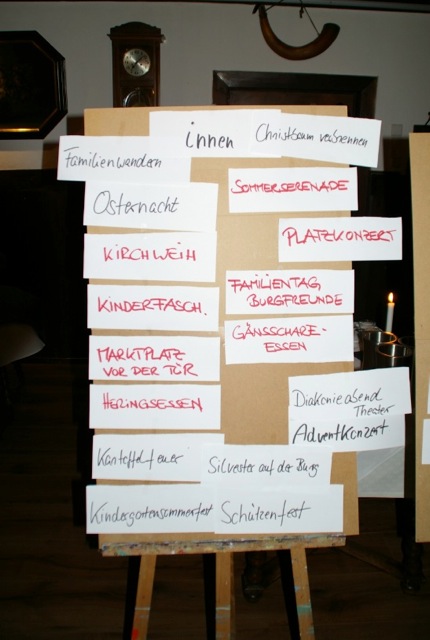 innen
Christbaum verbrennen
Familienwandern
SOMMERSERENADE
Osternacht
PLATZKONZERT
KIRCHWEIH
FAMILIENTAG
BURGFREUNDE
KINDERFASCH.
GÄNSSCHARE-
ESSEN
MARKTPLATZ
VOR DER TÜR
HERINGSESSEN
Diakonieabend
Theater
Adventkonzert
Kartoffelfeuer
Silvester auf der Burg
Kindergartensommerfest
Schützenfest